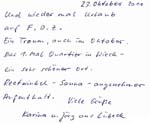 27. Oktober 2010
Und wieder mal Urlaub
auf F.D.Z.
Ein Traum, auch im Oktober.
Das 1. Mal Quartier in Wieck -
Ein sehr schöner Ort.
Reetwinkel - Sauna - angenehmer
Aufenthalt.
Viele Grüße
Karina u. Jörg aus Lübeck